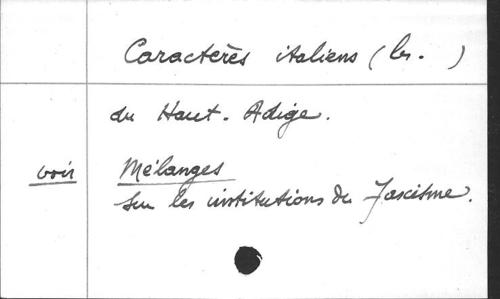 Caractères italiens (les. )
du Haut-Adige.
voir Mélanges
sur les institutions du Fascisme.